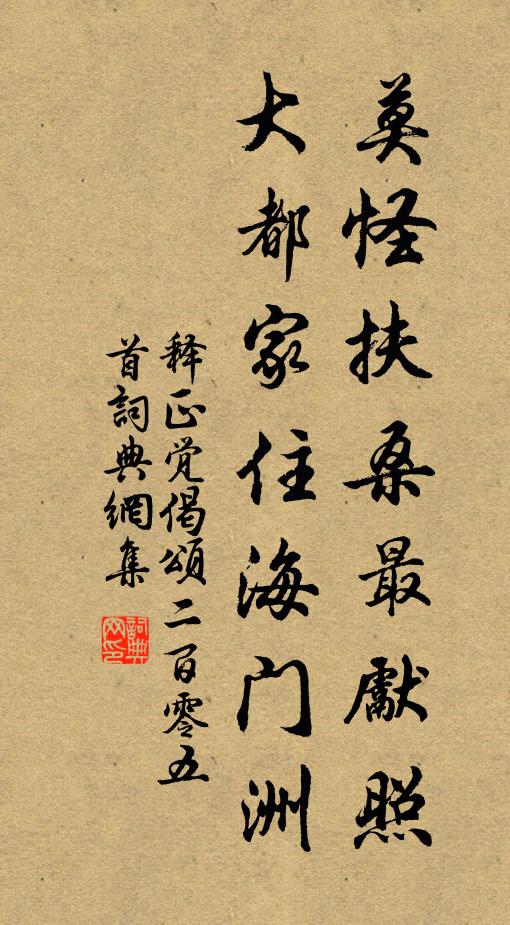 莫怪扶桑最獻照
大都家住海门洲
释正觉偈頌二百零五
首詞典網集
詞典
网印